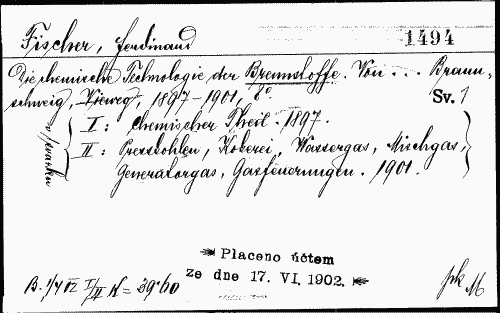 Fischer, Ferdinand 1494
Die chemische Technologie der Brennstoffe. Von ... Braun-
schweig, Vieweg, 1897-1901, 8° Sv. 1
I: Chemischer Theil. 1897.
II: Presskohlen, Kokerei, Wassergas, Mischgas,
Generatorgas, Gasfeuerungen. 1901.
v svazku
Placeno účtem
ze dne 17. VI. 1902.